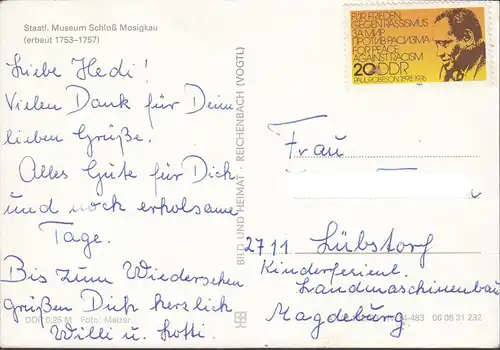 Staatl. Museum Schloß Mosigkau
(erbaut 1753–1757)
Liebe Hedi!
Vielen Dank für Deine
lieben Grüße.
Alles Gute für Dich
und noch erholsame
Tage.
Bis zum Wiedersehen
grüßen Dich herzlich
Willi u. Lotti.
DDR 0,25 M Foto: Melzer
BILD UND HEIMAT · REICHENBACH (VOGTL)
FÜR FRIEDEN
GEGEN RASSISMUS
ЗА МИР
ПРОТИВ РАСИЗМА
FOR PEACE
AGAINST RACISM
20 DDR
PAUL ROBESON 1898-1976
Frau
2711 Lübstorf
Kinderferienl.
Landmaschinenbau
Magdeburg
-483 06 08 31 232